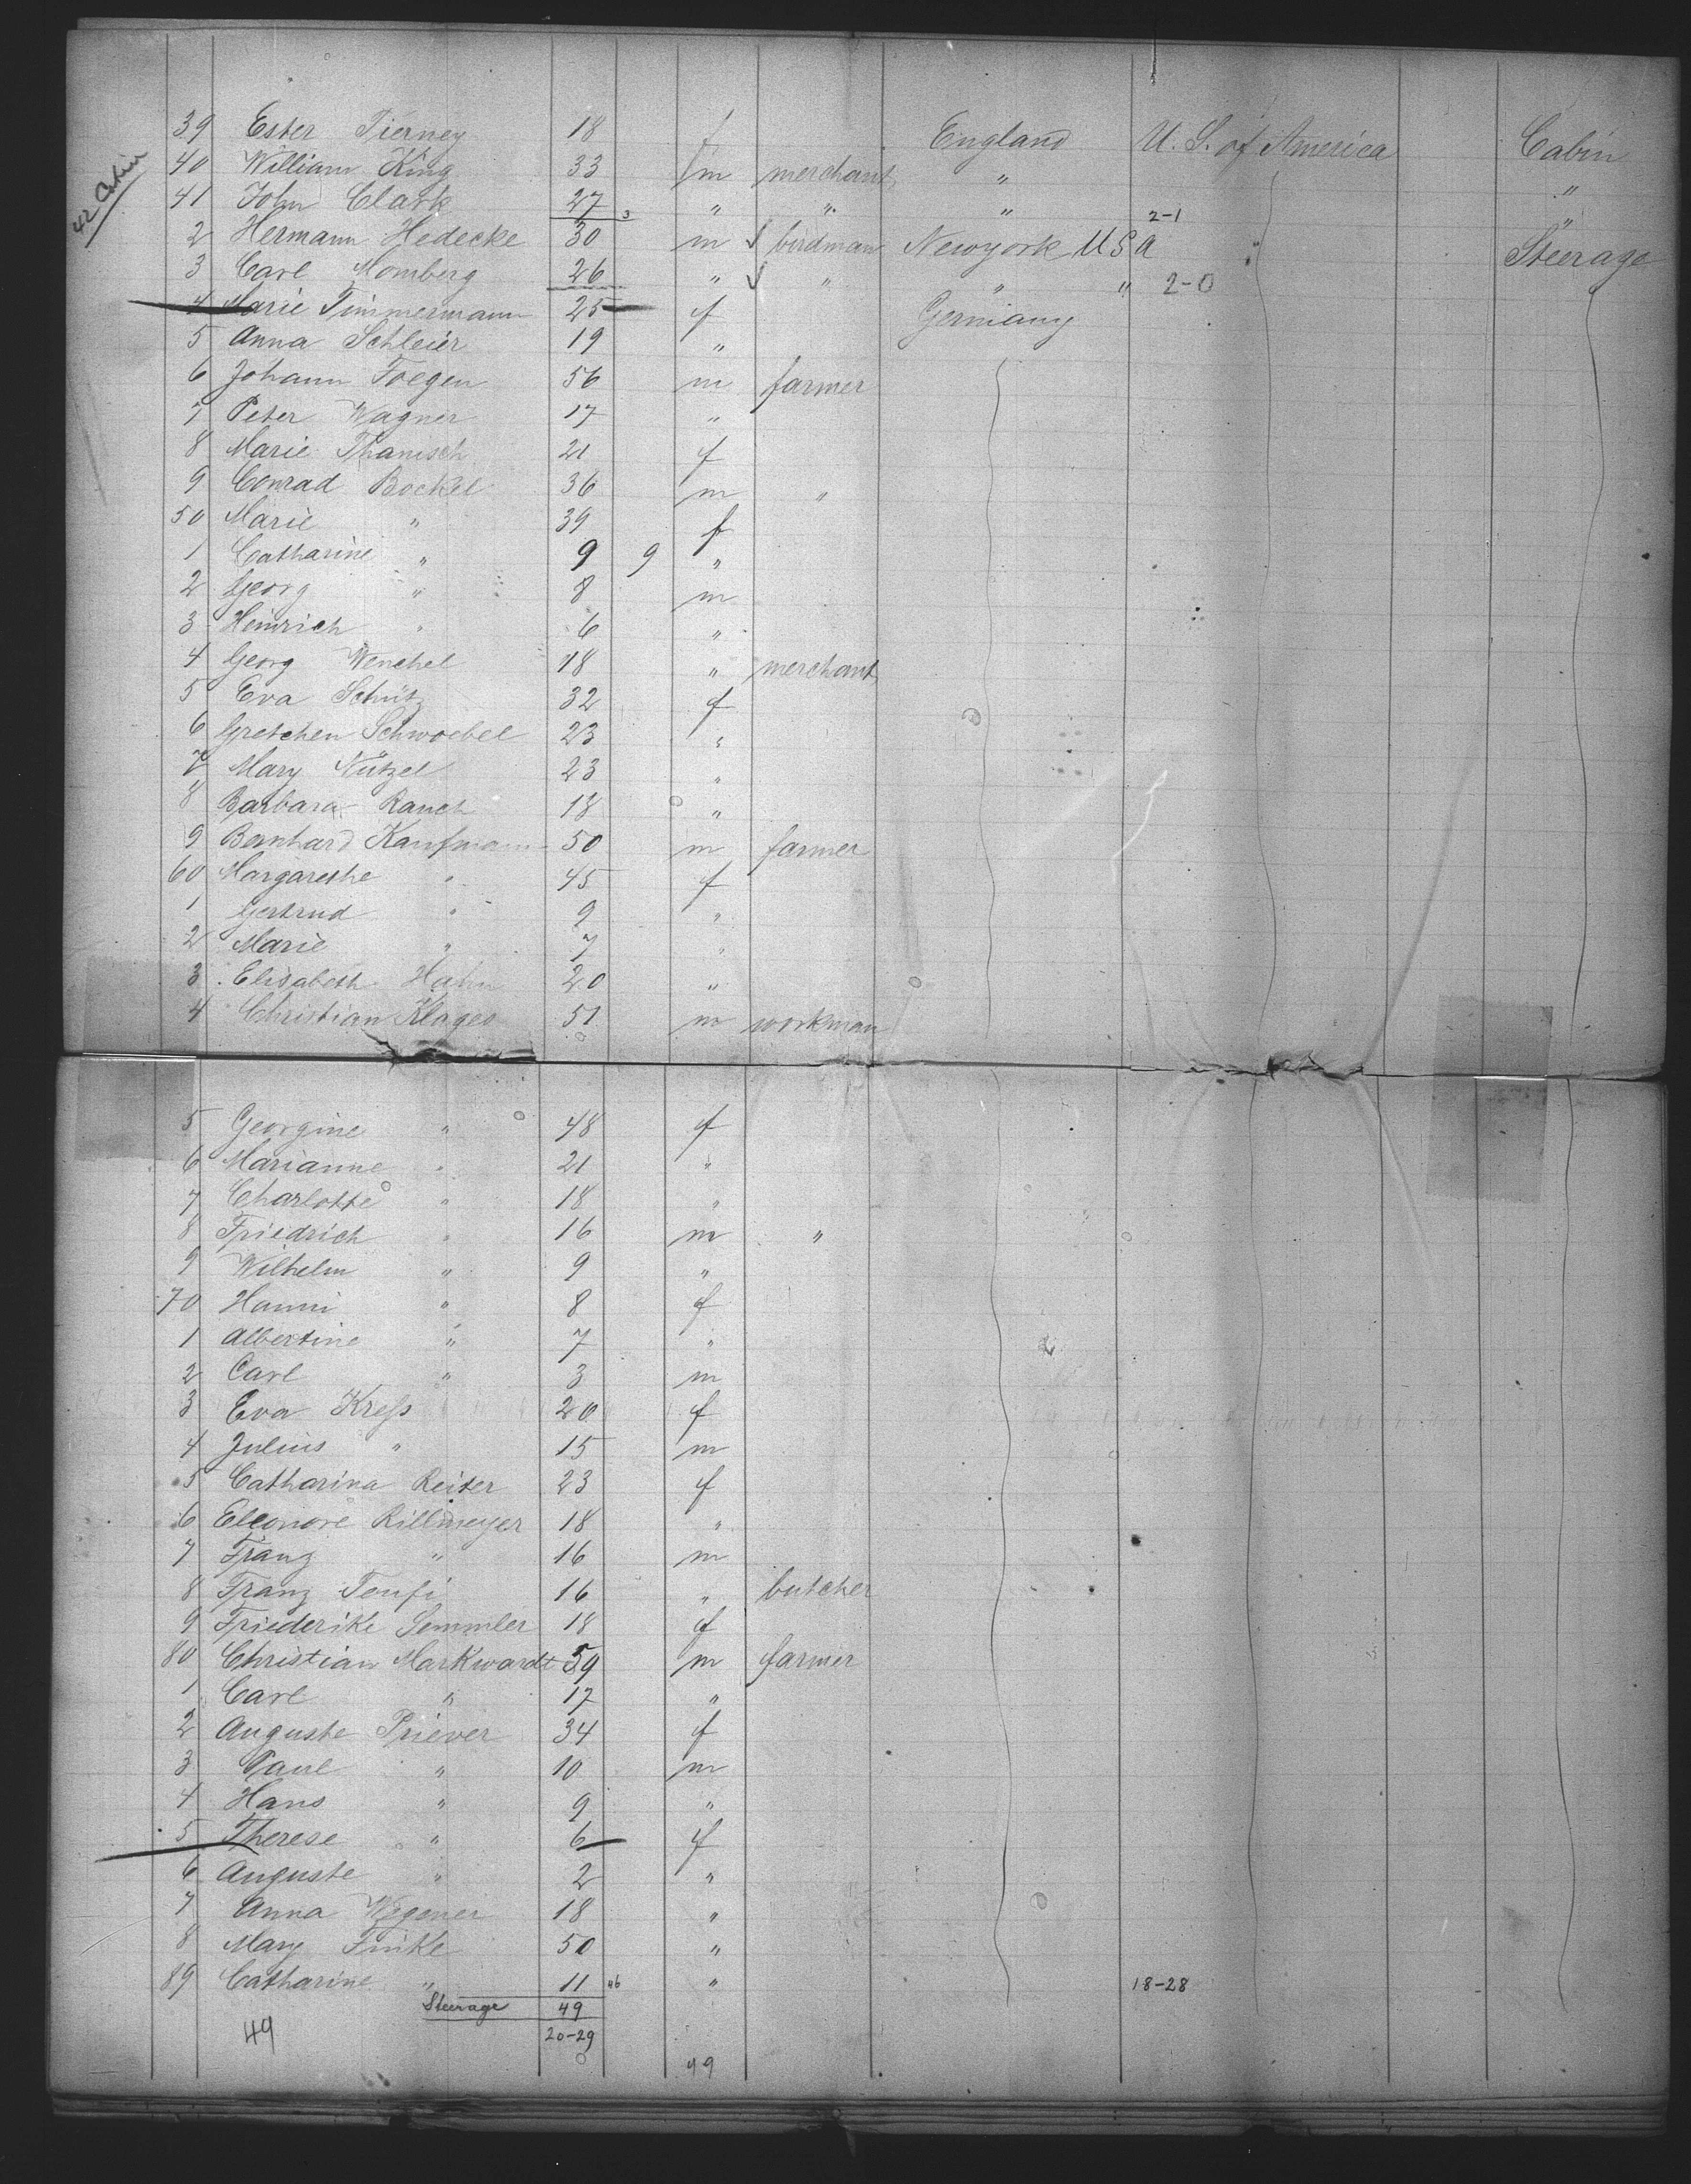 42 Cabin
39 Ester Tierney 18 f England U. S. of America Cabin
40 William King 33 m merchant " "
41 John Clark 27 3 " " " 2-1 "
2 Hermann Hedecke 30 m birdman Newyork USA Steerage
3 Carl Momberg 26 " " " " 2-0
4 Marie Timmermann 25 f Germany
5 Anna Schleier 19 "
6 Johann Foegen 56 m farmer
7 Peter Wagner 17 "
8 Marie Thanisch 21 f
9 Conrad Bockel 36 m "
50 Marie " 39 f
1 Catharine " 9 9 "
2 Georg " 8 m
3 Heinrich " 6 "
4 Georg Wenchel 18 " merchant
5 Eva Schütz 32 f
6 Gretchen Schwoebel 23 "
7 Mary Nützel 23 "
8 Barbara Rauch 18 "
9 Bernhard Kaufmann 50 m farmer
60 Margarethe " 45 f
1 Gertrud " 9 "
2 Marie " 7 "
3 Elisabeth Hahn 20 "
4 Christian Klages 51 m workman
5 Georgine " 48 f
6 Marianne " 21 "
7 Charlotte " 18 "
8 Friedrich " 16 m "
9 Wilhelm " 9 "
70 Hanni " 8 f
1 Albertine " 7 "
2 Carl " 3 m
3 Eva Kreſs 20 f
4 Julius " 15 m
5 Catharina Reiter 23 f
6 Eleonore Rillmeyer 18 "
7 Franz " 16 m
8 Franz 16 " butcher
9 Friederike Semmler 18 f
80 Christian Markwardt 59 m farmer
1 Carl " 17 "
2 Auguste Priever 34 f
3 Paul " 10 m
4 Hans " 9 "
5 Therese " 6 f
6 Auguste " 2 "
7 Anna Wegener 18 "
8 Mary Finke 50 "
89 Catharine " 11 46 " 18-28
Steerage 49
49 20-29
49